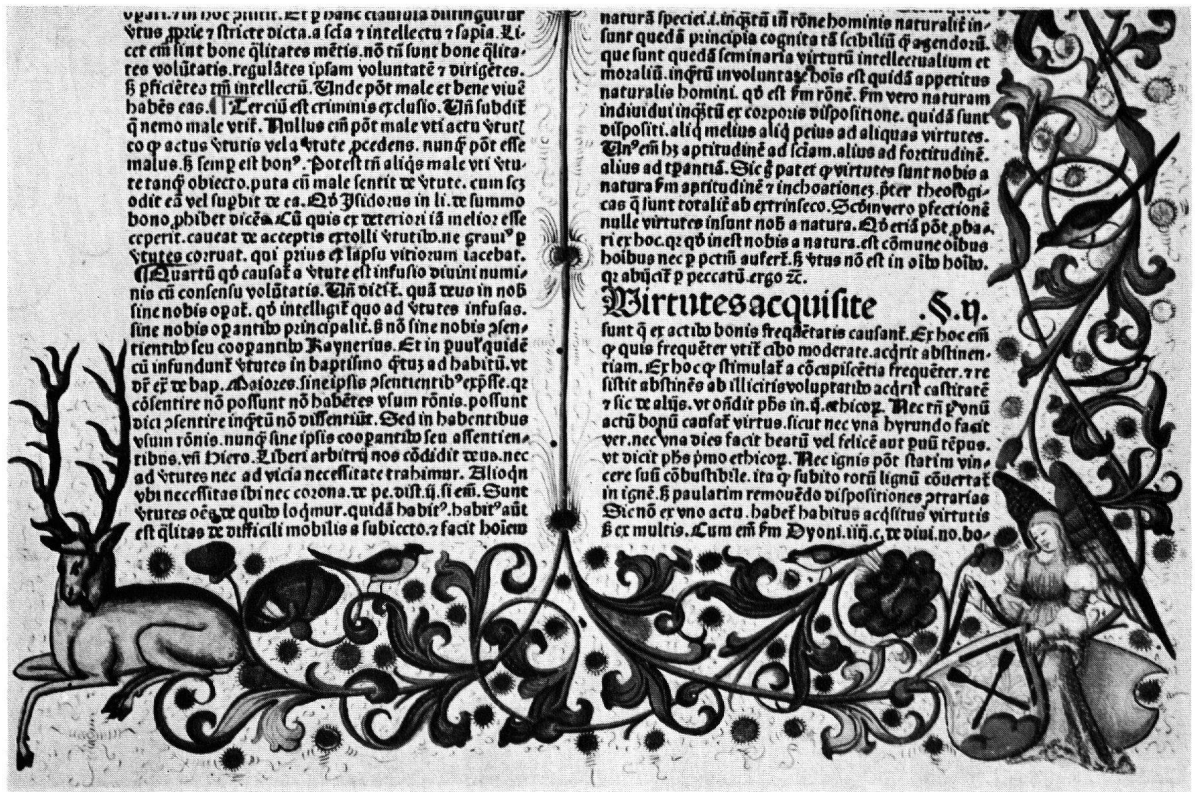 ōpari. ⁊ in hoc ↄsistit. Et ꝑ hanc clausulā distinguitur
v̓tus ꝓprie ⁊ stricte dicta. a scīa ⁊ intellectu ⁊ sapīa. Li-
cet em̄ sint bone q̄litates mētis. nō tn̄ sunt bone q̄lita-
tes volūtatis. regulātes ipsam voluntatē ⁊ dirigētes.
sꝫ ꝑficiētea tm̄ intellectū. Unde pōt male et bene viuē
habēs eas. ¶ Terciū est criminis exclusio. Un̄ subdit̄
q̄ nemo male vtit̄. Nullus em̄ pōt male vti actu v̓tutl
co ꝙ actus v̓tutis vel a v̓tute ꝓcedens. nunq̄ pōt esse
malus. sꝫ semꝑ est bonꝰ. Potest tn̄ aliq̄s male vti v̓tu-
te tanq̄ obiecto. puta cū male sentit de v̓tute. cum scꝫ
odit eā vel suꝑbit de ea. Qd̄ Isidorus in li. de summo
bono ꝓhibet dicēs. Cū quis ex deteriori iā melior esse
ceperit. caueat de acceptis extolli v̓tutibꝰ. ne grauiꝰ ꝑ
v̓tutes corruat. qui prius ex lapsu vitiorum iacebat.
¶ Quartū qd̄ causat̄ a v̓tute est infusio diuini numi-
nis cū consensu volūtatis. Un̄ dicit̄. quā deus in nob̄
sine nobis oꝑat̄. qd̄ intelligit̄ quo ad v̓tutes infusas.
sine nobis oꝑantibꝰ principalit̄. sꝫ nō sine nobis ↄsen-
tientibꝰ seu cooꝑantibꝰ Raynerius. Et in ꝑuul̓ quidē
cū infundunt̄ v̓tutes in baptismo q̄tuꝫ ad habitū. vt
dr̄ ex̄ de bap. Maiores. sine ipsis ↄsentientibꝰ exp̄sse. qꝛ
cōsentire nō possunt nō habētes vsum rōnis. possunt
dici ↄsentire inq̄tū nō dissentiūt. Sed in habentibus
vsum rōnis. nunq̄ sine ipsis cooꝑantibꝰ seu assentien-
tibus. vn̄ Hiero. Liberi arbitrij nos cōdidit deus. nec
ad v̓tutes nec ad vicia necessitate trahimur. Alioqn̄
vbi necessitas ibi nec corona. de pe. dist. ij. si em̄. Sunt
v̓tutes oēs de quibꝰ loq̄mur. quidā habitꝰ. habitꝰ aūt
est q̄litas de difficili mobilis a subiecto. ⁊ facit hoīem
naturā speciei. i. inq̄tū in rōne hominis naturalit̄ in-
sunt quedā principia cognita tā scibiliū q̄ agendorū.
que sunt quedā seminaria virtutū intellectualium et
moraliū. inq̄tū in voluntate hoīs est quidā appetitus
naturalis homini. qd̄ est ẜm rōnē. ẜm vero naturam
indiuidui inq̄tū ex corporis dispositione. quidā sunt
dispositi. aliq̄ melius aliq̄ peius ad aliquas virtutes.
Unꝰ em̄ hꝫ aptitudinē ad sciam. alius ad fortitudinē.
alius ad tꝑantiā. Sic gͦ patet ꝙ virtutes sunt nobis a
natura ẜm aptitudinē ⁊ inchoationeꝫ. p̄ter theologi-
cas q̄ sunt totalit̄ ab extrinseco. Scd̄m vero ꝑfectionē
nulle virtutes insunt nob̄ a natura. Qd̄ etiā pōt ꝓba-
ri ex hoc. qꝛ qd̄ inest nobis a natura. est cōmune oībus
hoībus nec ꝑ pctm̄ aufert̄. sꝫ v̓tus nō est in oībꝰ hoībꝰ.
qꝛ abijcit̄ ꝑ peccatū. ergo ⁊c̄.
Virtutes acquisite .§. ij.
sunt q̄ ex actibꝰ bonis freq̄tētatis causant̄. Ex hoc em̄
ꝙ quis frequēter vtit̄ cibo moderate. acq̄rit abstinen-
tiam. Ex hoc ꝙ stimulat̄ a cōcupiscētia frequēter. ⁊ re
sistit abstinēs ab illicitis voluptatibꝰ acq̄rit castitatē
⁊ sic de alijs. vt on̄dit ph̄s in. ij. ethicoꝝ. Nec tn̄ ꝑ vnū
actū bonū causat̄ virtus. sicut nec vna hyrundo facit
ver. nec vna dies facit beatū vel felicē aut puū tēpus.
vt dicit ph̄s pͥmo ethicoꝝ. Nec ignis pōt statim vin-
cere suū cōbustibile. ita ꝙ subito totū lignū cōuertat̄
in ignē. sꝫ paulatim remouēdo dispositiones ↄtrarias
Sic nō ex vno actu. habet̄ habitus acq̄situs virtutis
sꝫ ex multis. Cum em̄ ẜm Dyoni. iiij. c. de diui. no. bo-